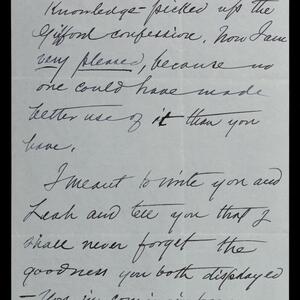 Knowledge - picked up the
Gifford confession. Now I am
very pleased, because no
one could have made
better use of it than you
have.
I meant to write you and
Leah and tell you that I
shall never forget the
goodness you both displayed